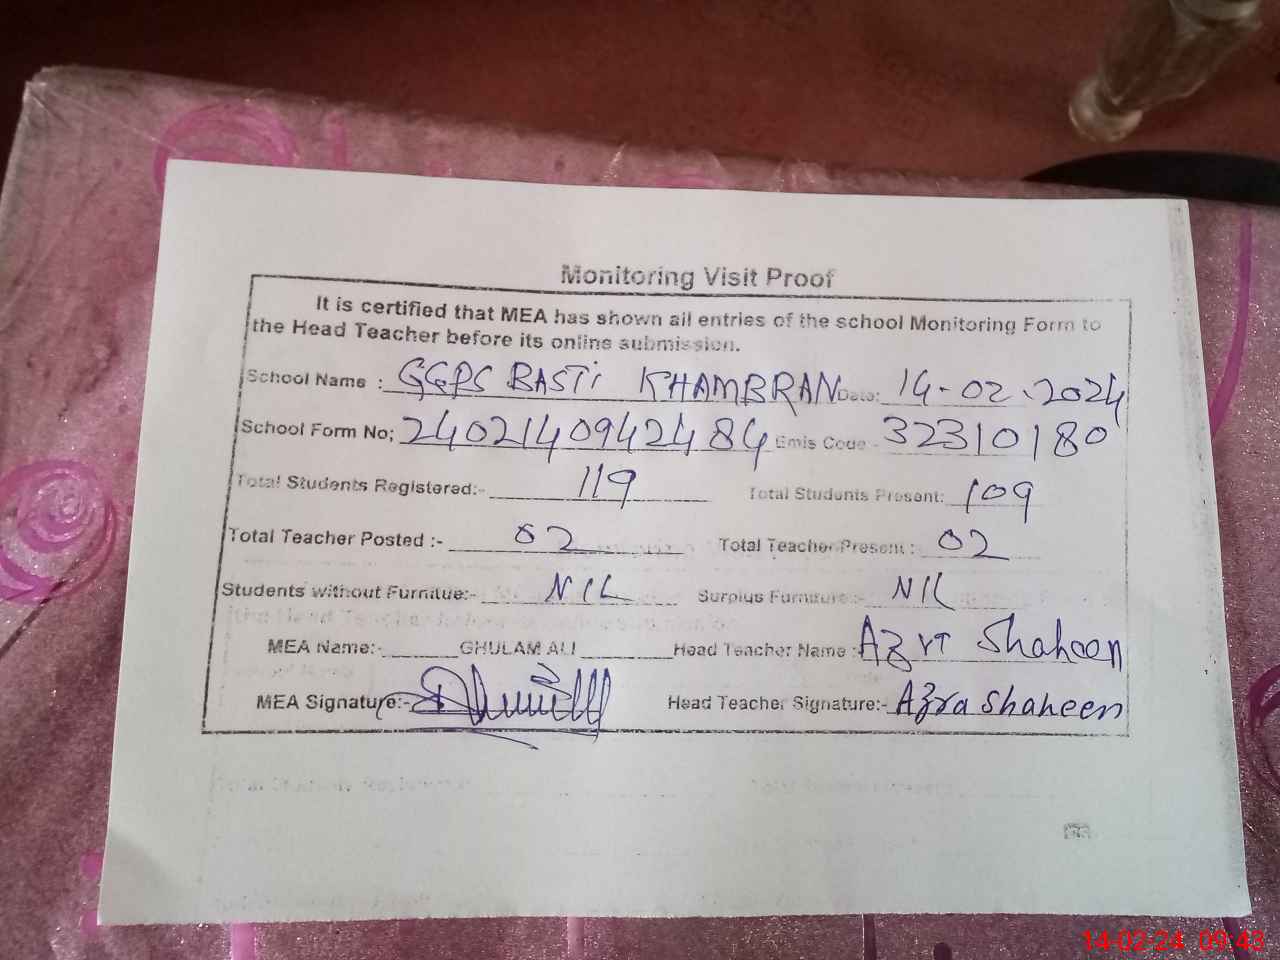 Monitoring Visit Proof
It is certified that MEA has shown all entries of the school Monitoring Form to
the Head Teacher before its online submission.
School Name : GGPS BASTI KHAMBRAN Date: 14-02-2024
School Form No; 2402140942484 Emis Code - 32310180
Total Students Registered:- 119 Total Students Present: 109
Total Teacher Posted :- 02 Total Teacher Present : 02
Students without Furnitue:- NIL Surplus Furniture:- NIL
MEA Name:- GHULAM ALI Head Teacher Name : Azra Shaheen
MEA Signature:- Head Teacher Signature:- Azra Shaheen
14-02-24 09:43